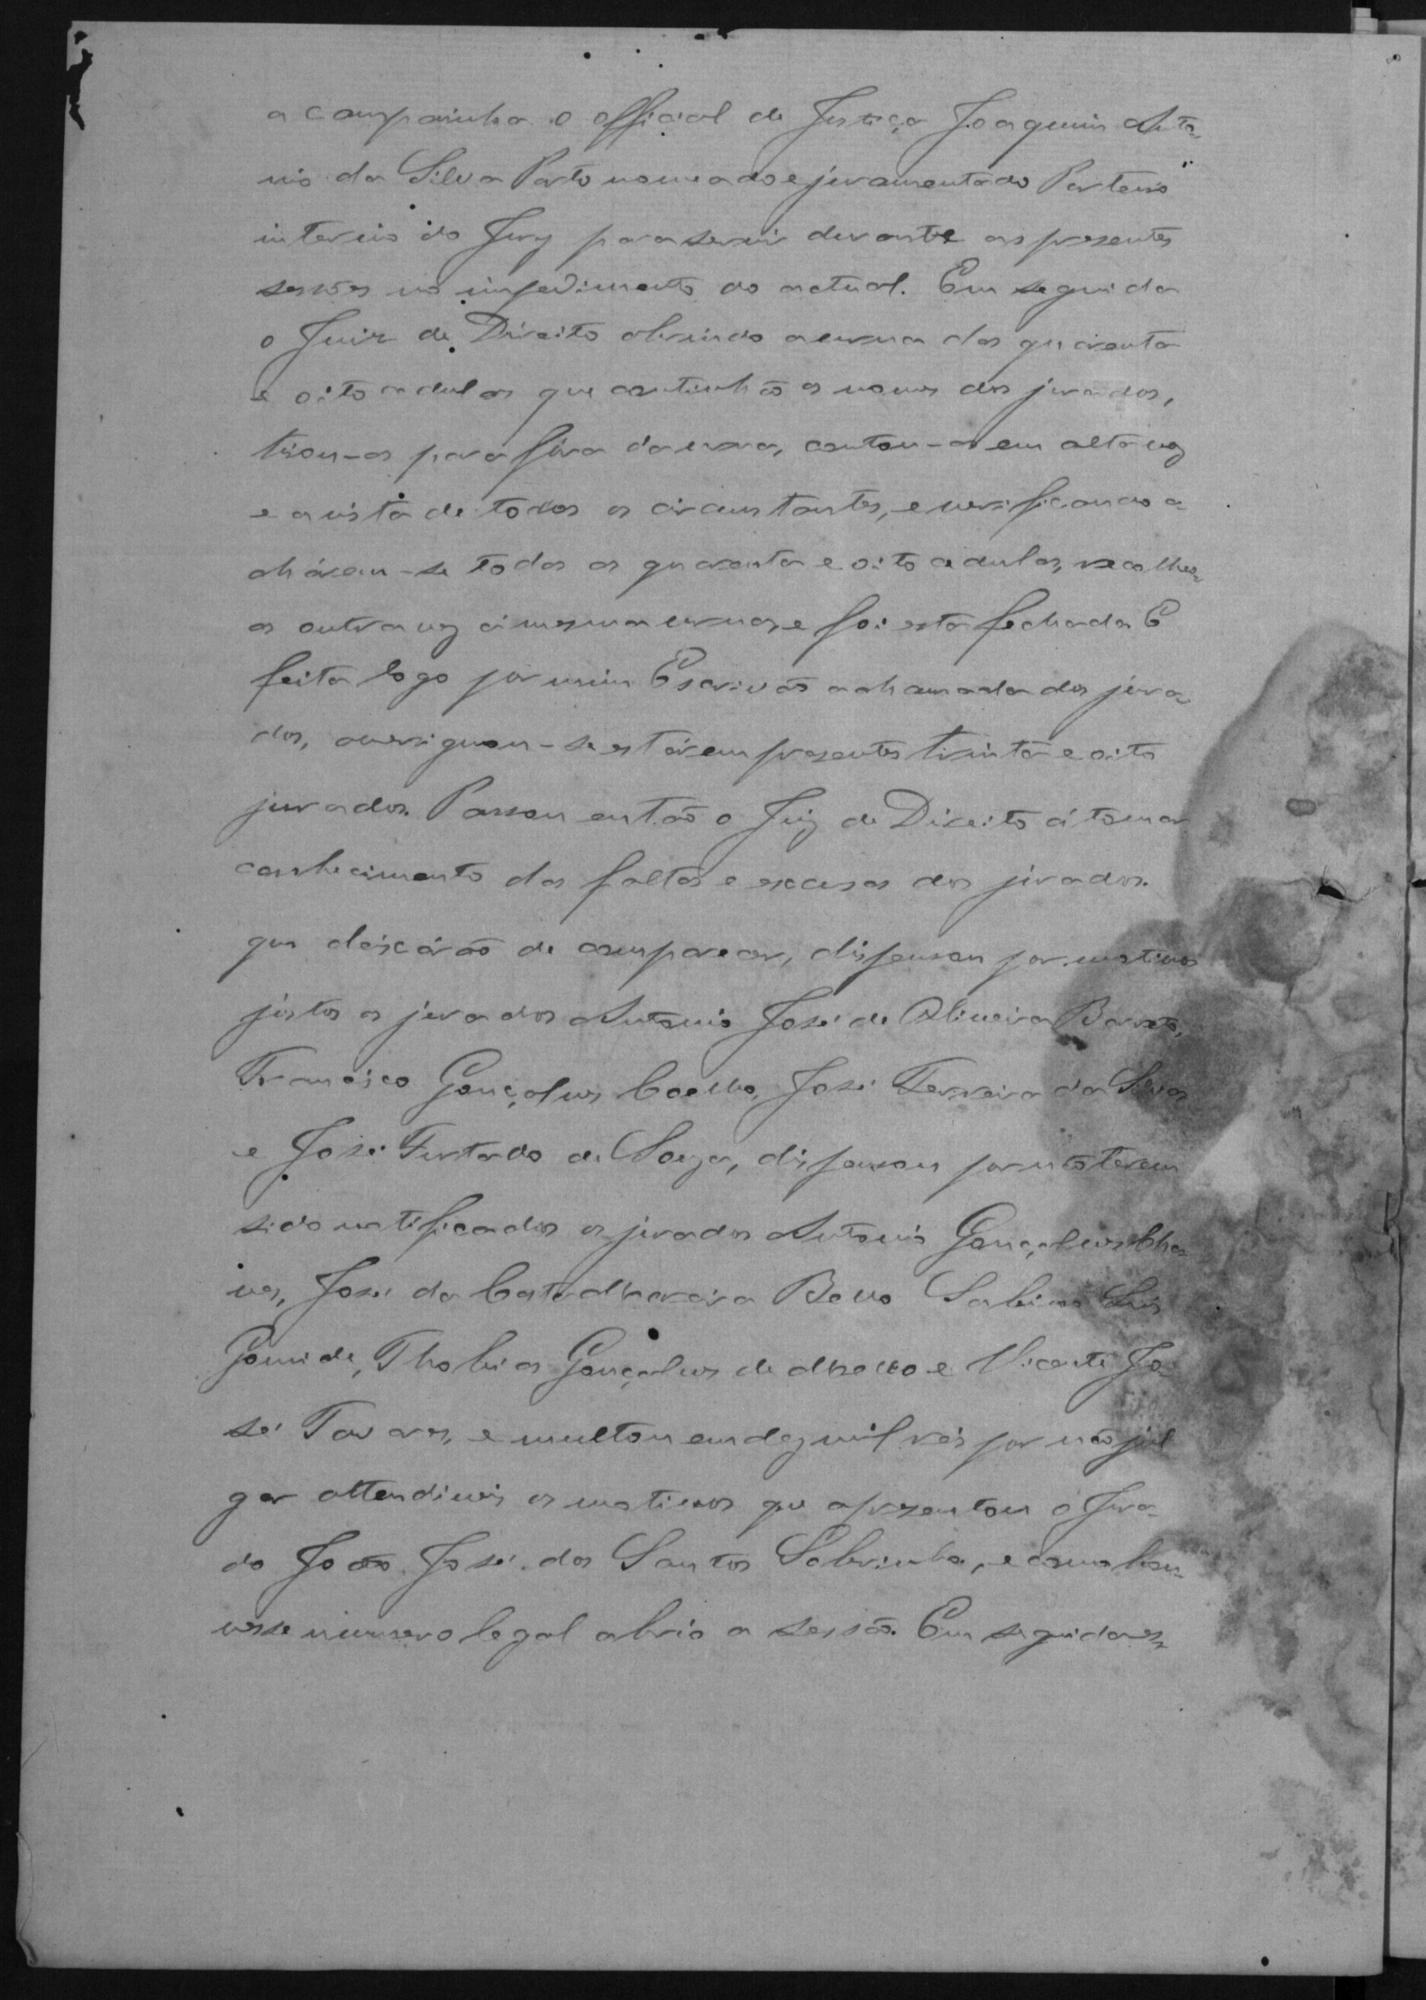 a campainha o official de Justiça Joaquim Anto-
nio da Silva Porto nomeado e juramentado Porteiro
interino do Jury para servir durante as presentes
sessões no impedimento do actual. Em seguida
o Juiz de Direito abrindo a urna das quarenta
e oito cedulas que continhão os nomes dos jurados,
tirou-as para fóra da urna, contou-as em alta voz
e a vista de todos os circunstantes, e verificando a-
chárem-se todas as quarenta e oito cedulas, recolheu-
as outra vez á mesma urna, e foi esta fechada. E
feita logo por mim Escrivão a chamada dos jura-
dos, averiguou-se estárem presentes trinta e oito
jurados. Passou então o Juiz de Direito á tomar
conhecimento das faltas e escusas dos jurados
que deixárão de comparecer, dispensou por motivos
justos os jurados Antonio José de Oliveira Barreto,
Francisco Gonçalves Coelho, José Ferreira da Silva
e José Furtado de Souza, dispensou por não terem
sido notificados os jurados Antonio Gonçalves Cha-
ves, José da Costa Moreira Bello Sabino Luis
Gomide, Thobias Gonçalves de Mello e Vicente Jo-
sé Tavares, e multou em dez mil réis por não jul
gar attendiveis os motivos que apresentou o Jura-
do João José dos Santos Sobrinho, e como hou-
vesse numero legal abrio a sessão. Em seguida es-